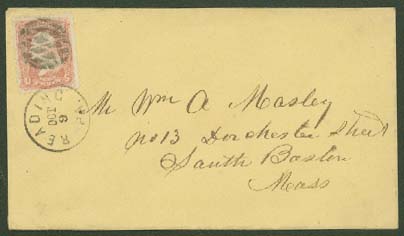 READING
OCT
9
Mr Wm A Mosley
No 13 Dorchester Street
South Boston
Mass